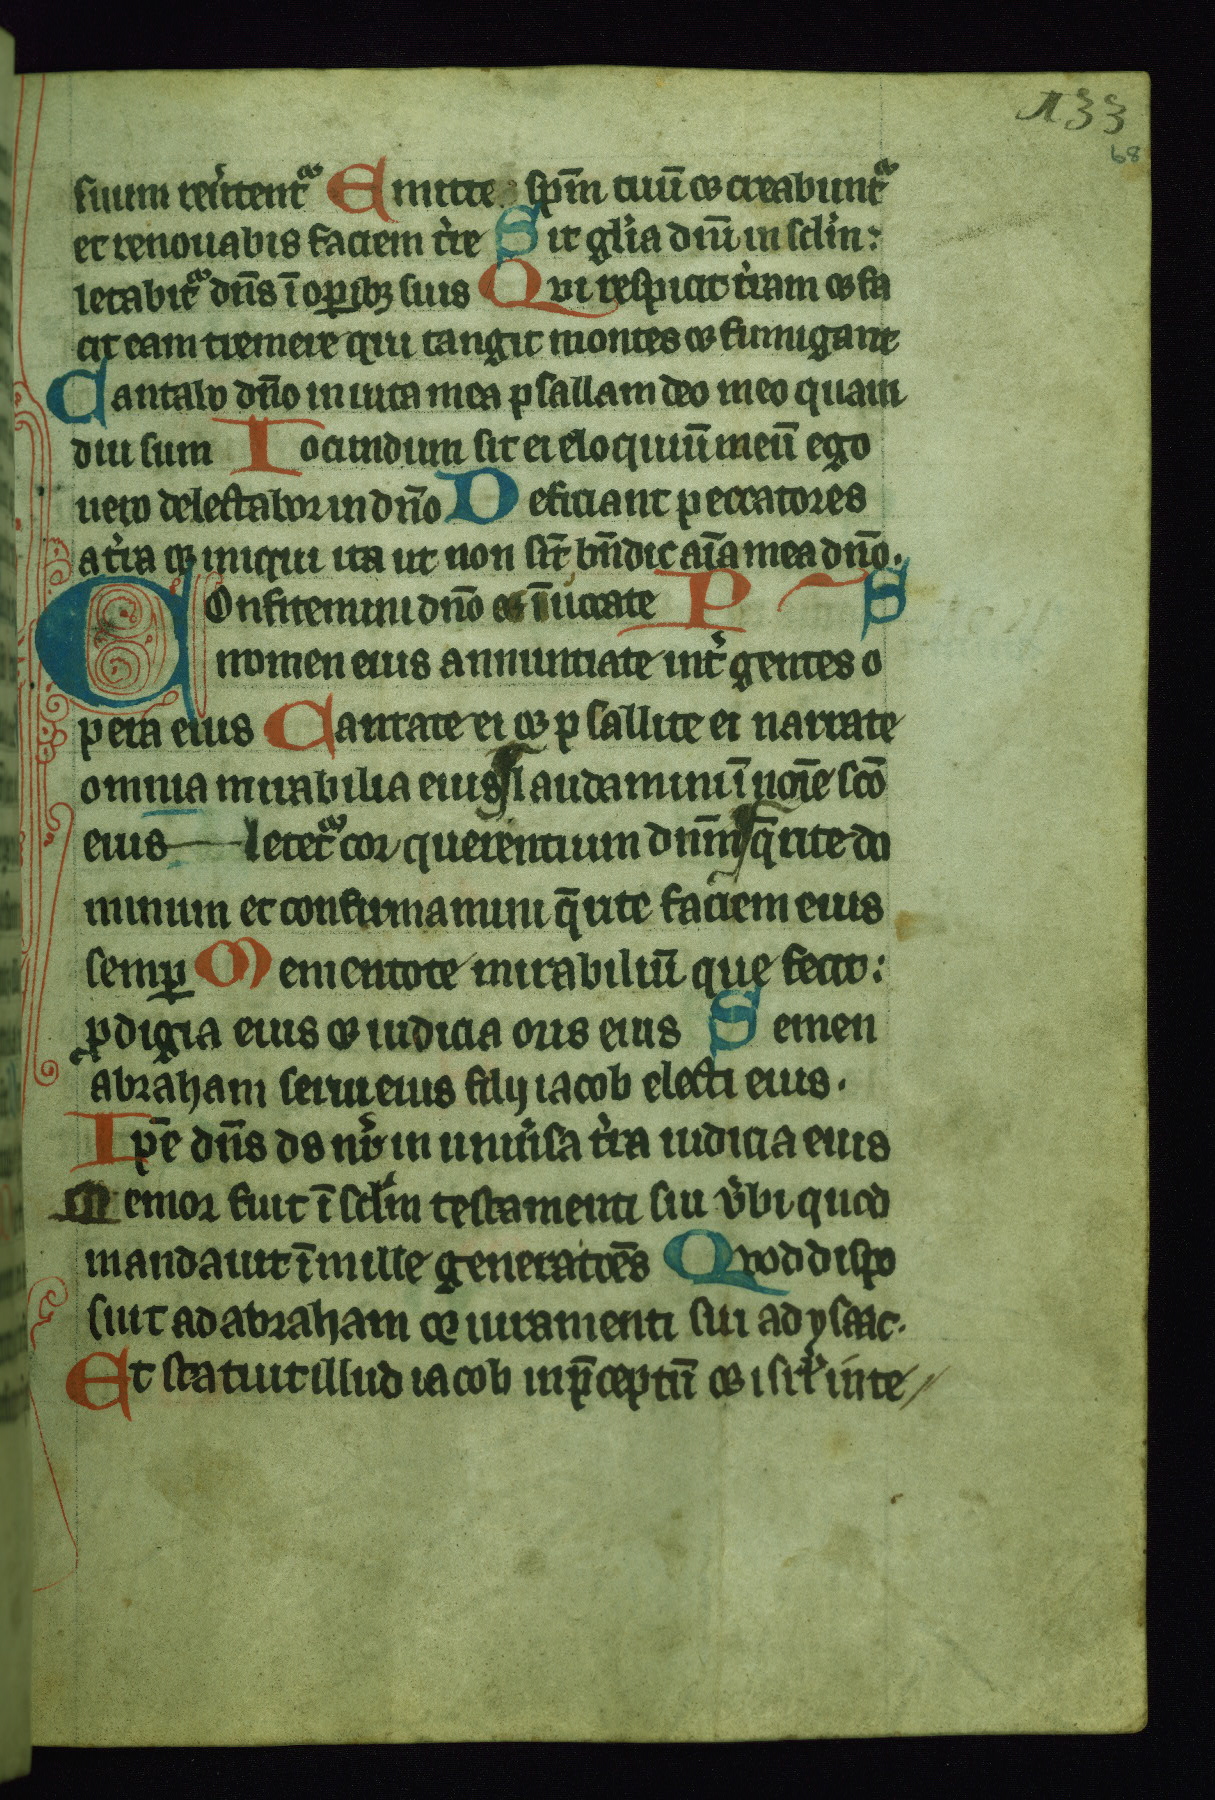 133
68
suum reu̓tentᷓ Emitte sp̄m tuū ⁊ creabuntᷓ
et renouabis faciem tr̓re Sit gl̓ia dn̄i in scl̓m:
letabitᷓ dn̄s ī oꝑibꝫ suis Qui respicit tr̓ram ⁊ fa
cit eam tremere qui tangit montes ⁊ fumigant
Cantabo dn̄o in uita mea psallam deo meo quam
diu sum Iocundum sit ei eloquiū meū ego
uero delectabor in dn̄o Deficiant peccatores
a tr̓ra ⁊ iniqui ita ut non sīt bn̄dic aīa mea dn̄o.
COnfitemini dn̄o ⁊ īuocate P S
nomen eius annuntiate int̓ gentes o
pera eius Cantate ei ⁊ psallite ei narrate
omnia mirabilia eius laudamini ī noīe scō
eius letetᷓ cor querentium dnm̄ q̄rite do
minum et confirmamini q̄rite faciem eius
semꝑ Mementote mirabiliū que fecit:
ꝓdigia eius ⁊ iudicia oris eius Semen
abraham serui eius filij iacob electi eius.
Ip̄e dn̄s ds nr̓ in uniu̓sa tr̓ra iudicia eius
Memor fuit ī scl̓m testamenti sui u̓bi quod
mandauit ī mille generatōēs Quod dispo
suit ad abraham ⁊ iuramenti sui ad ysaac.
Et statuit illud iacob in p̄ceptū ⁊ isrl̓ in te//